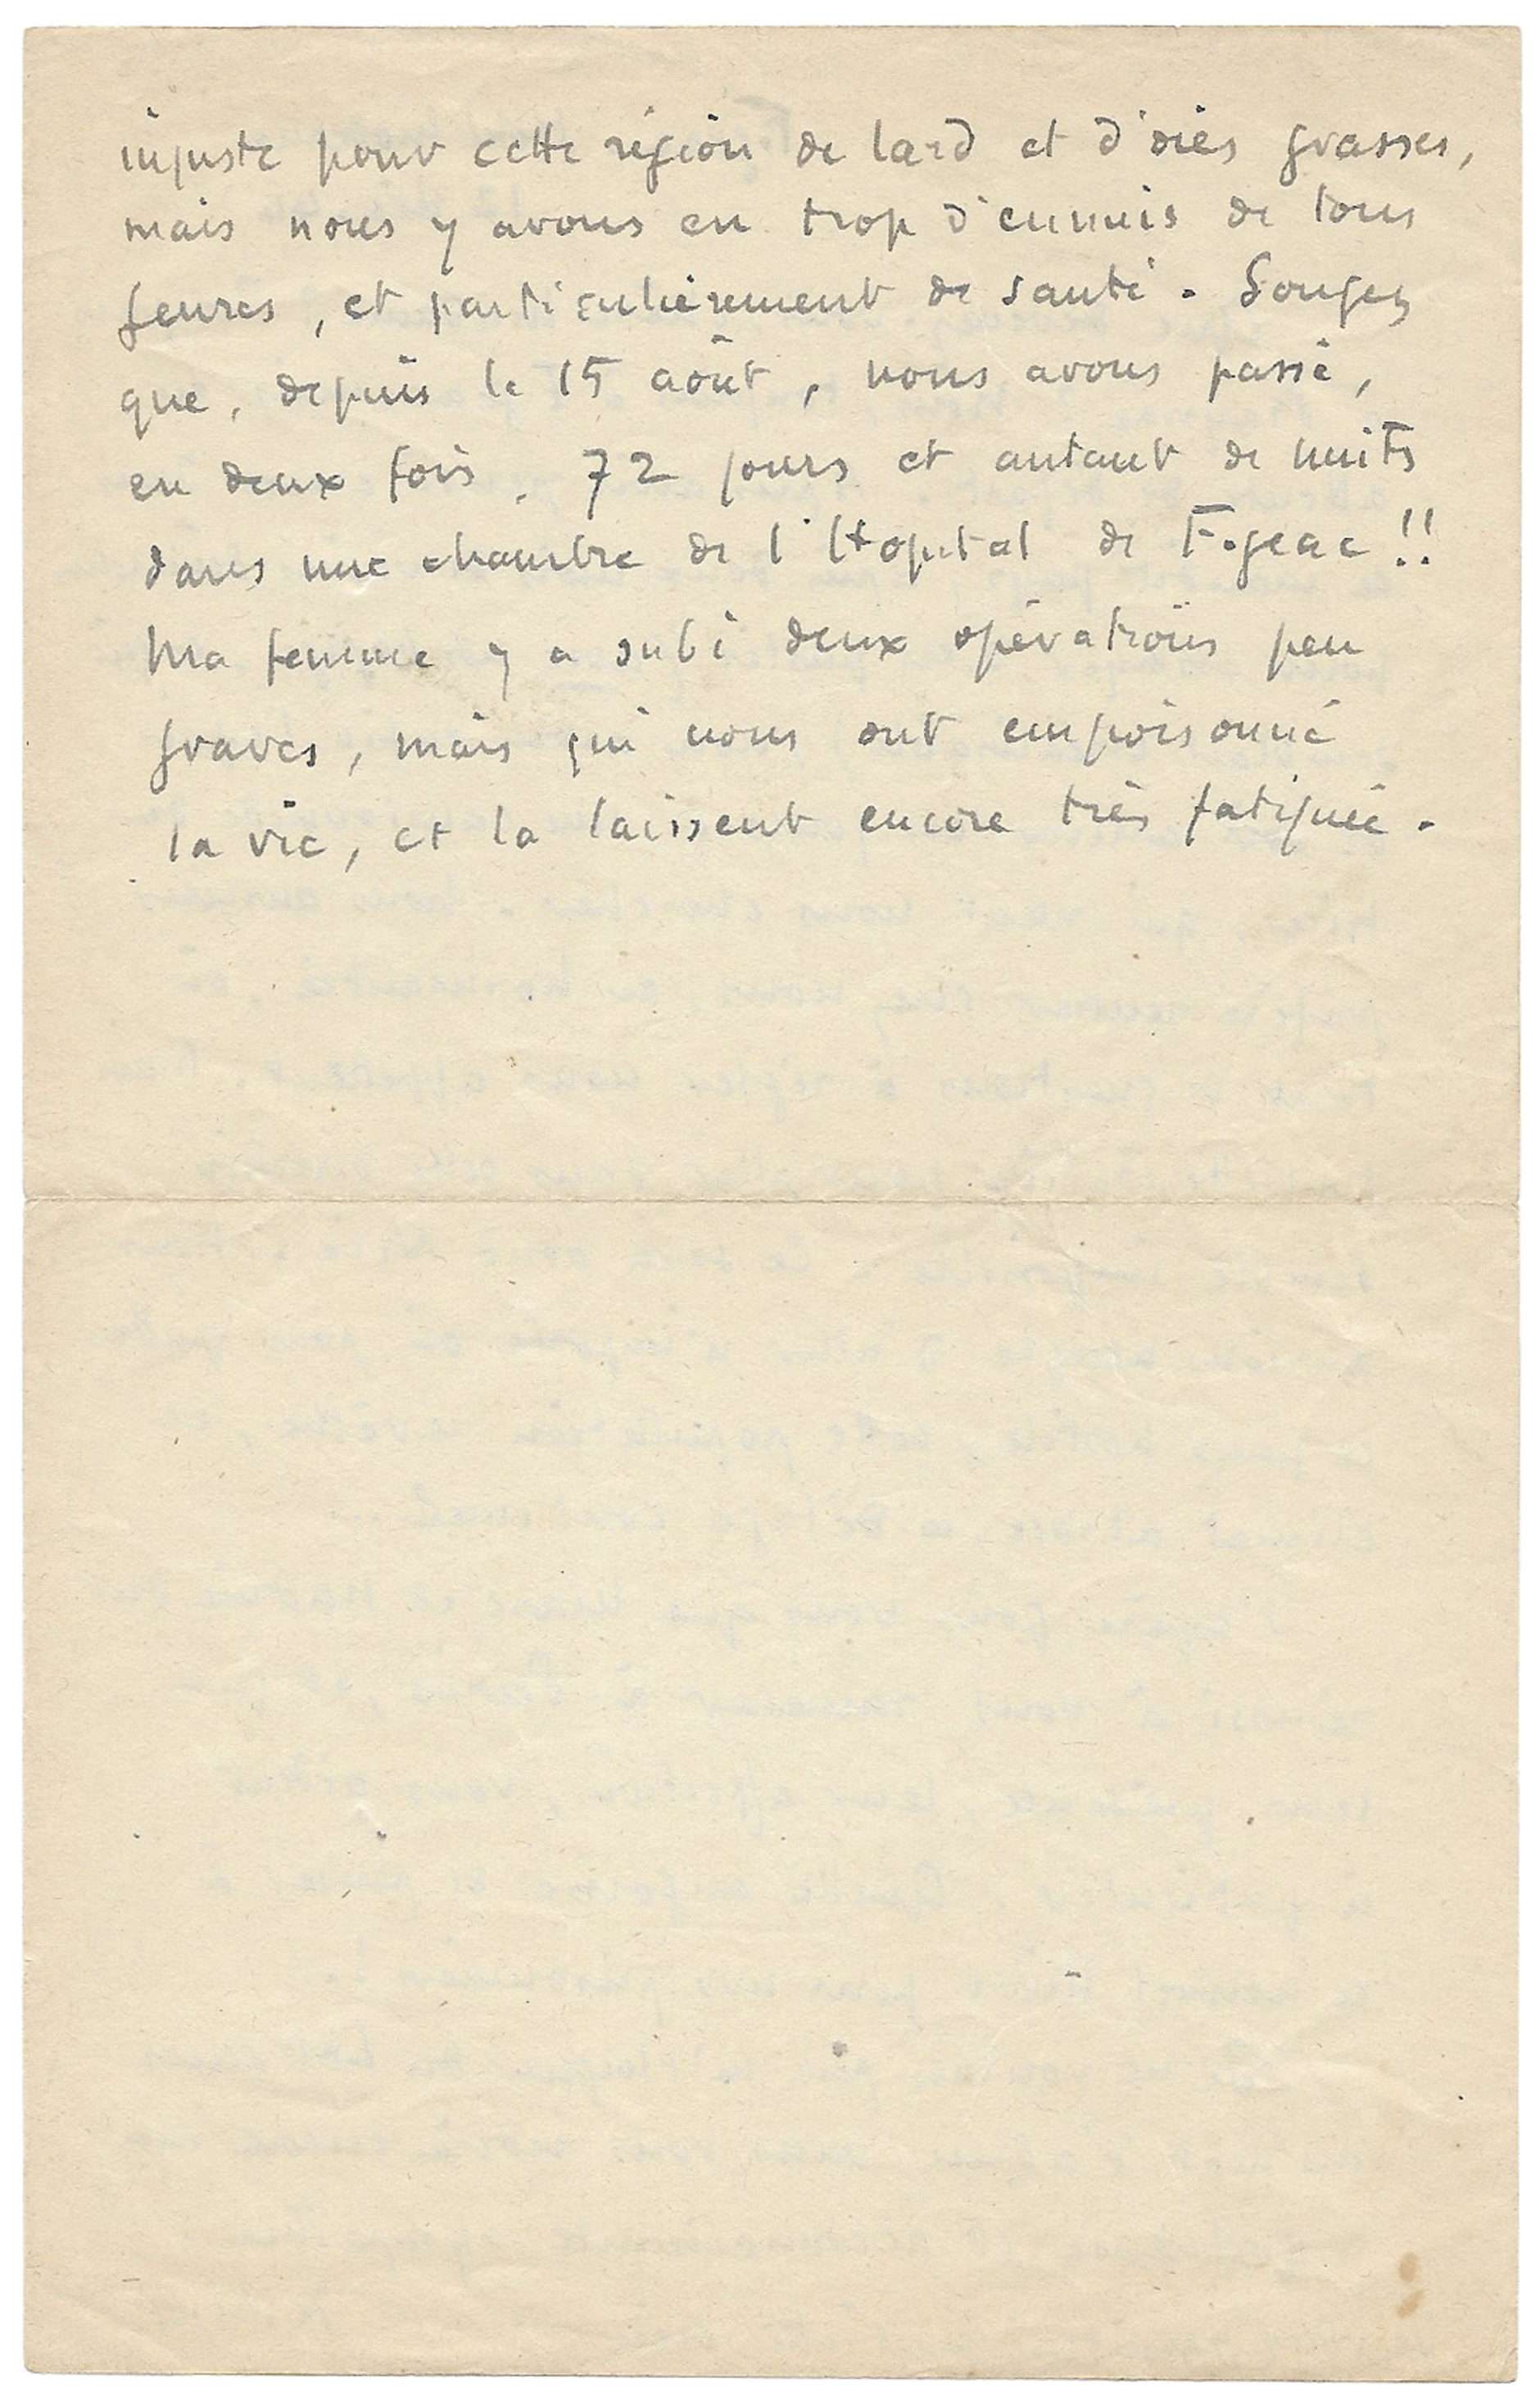 injuste pour cette région de lard et d'oies grasses,
mais nous y avons eu trop d'ennuis de tous
genres, et particulièrement de santé. Songez
que, depuis le 15 août, nous avons passé,
en deux fois, 72 jours et autant de nuits
dans une chambre de l'Hopital de Figeac !!
Ma femme y a subi deux opérations peu
graves, mais qui nous ont empoisonné
la vie, et la laissent encore très fatiguée.